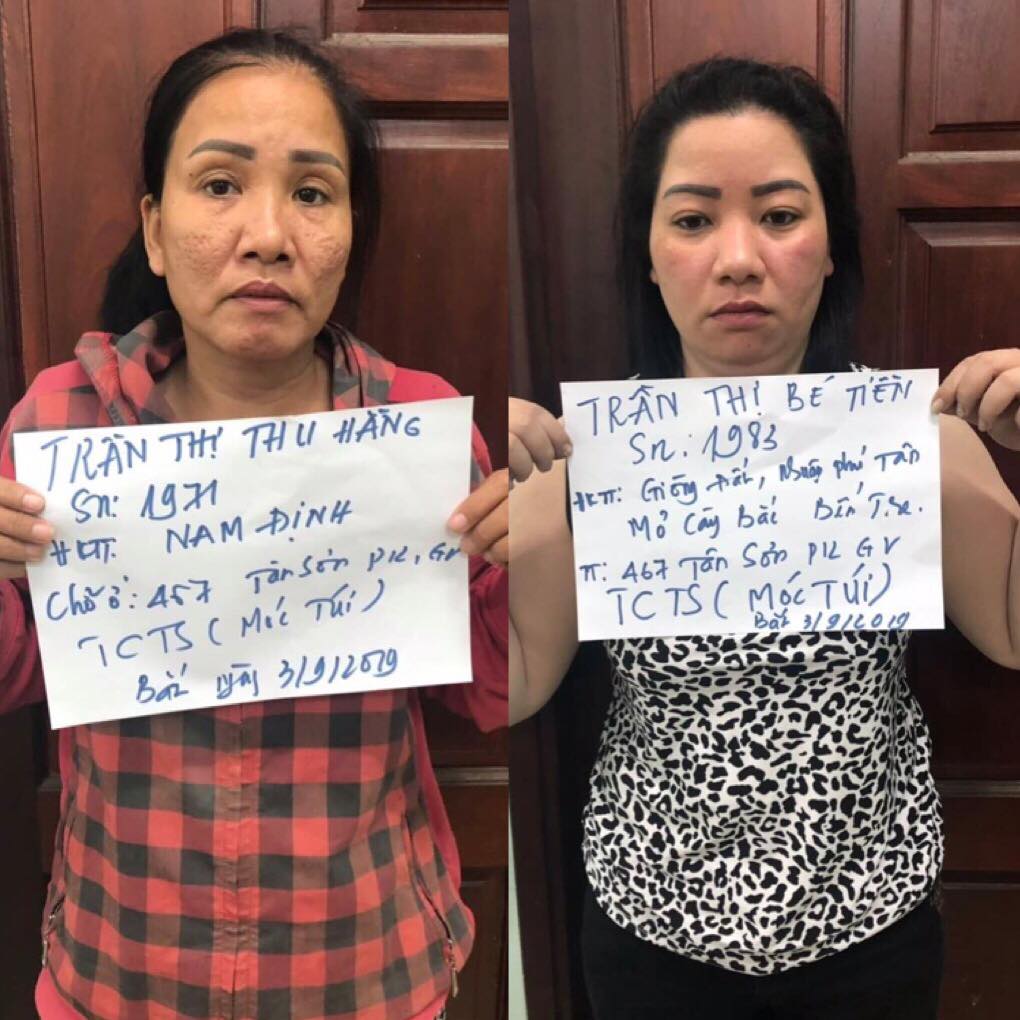 TRẦN THỊ THU HẰNG
Sn: 1971
HKTT. NAM ĐỊNH
Chỗ ở: 457 Tân Sơn P12, GV
TCTS ( MÓC TÚI )
Bắt ngày 3/9/2019
TRẦN THỊ BÉ TIỀN
Sn: 1983
HKTT: Giồng Đắt, Phú Tân
Mỏ Cày Bắc Bến Tre.
TT: 467 Tân Sơn P12 GV
TCTS ( MÓC TÚI )
Bắt 3/9/2019